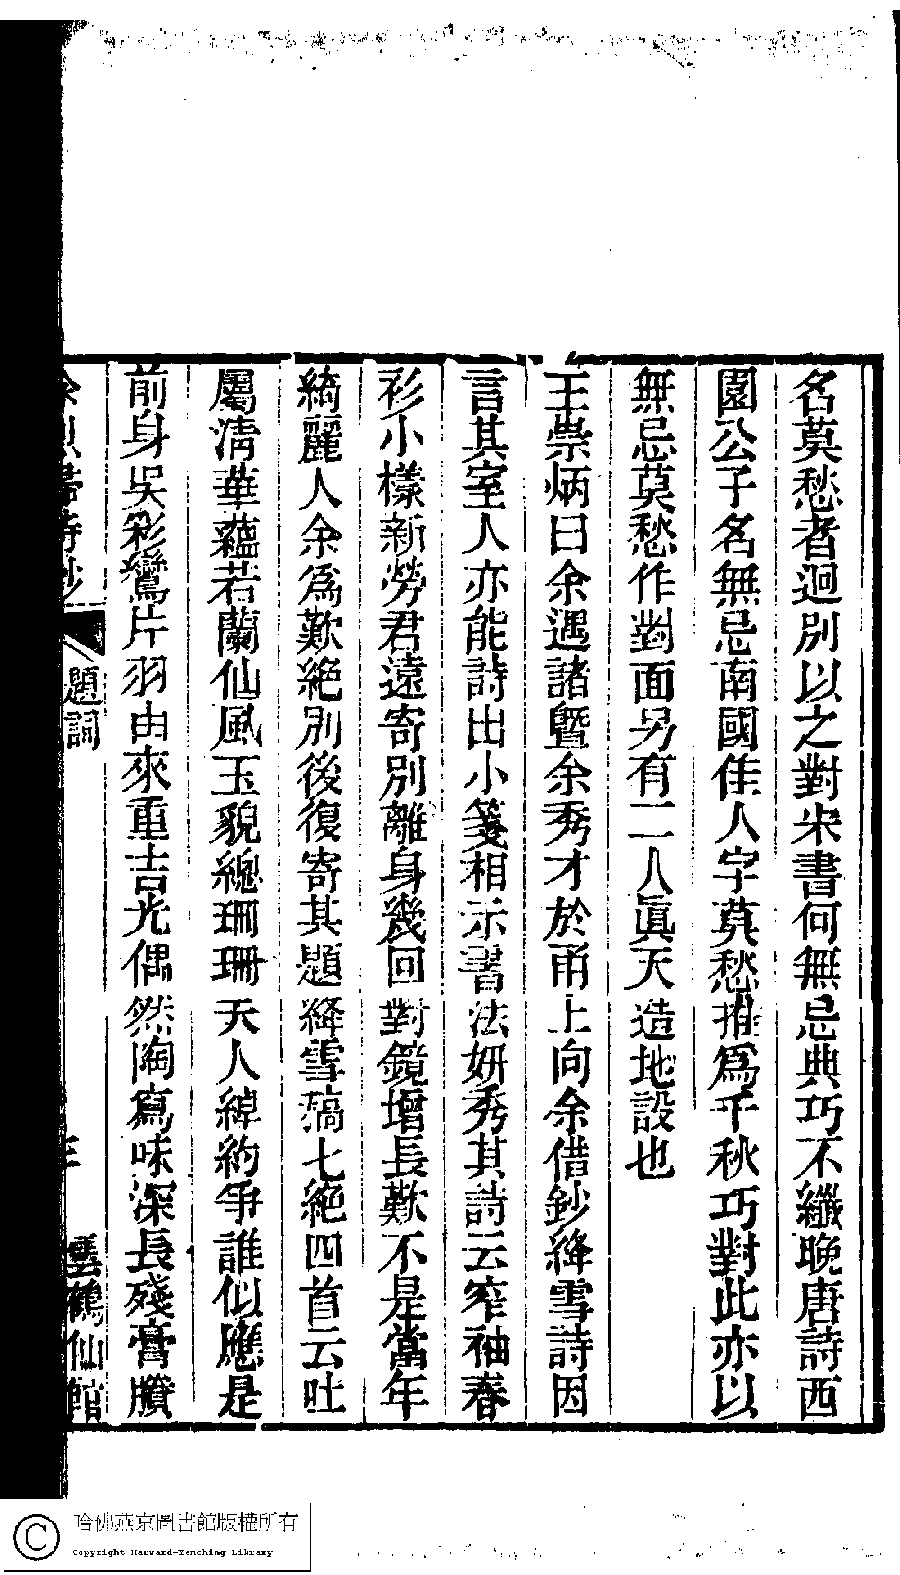 名莫愁者迥別以之對宋書何無忌典巧不纖晚唐詩西
園公子名無忌南國佳人字莫愁推爲千秋巧對此亦以
無忌莫愁作對面另有二人眞天造地設也
王崇炳曰余遇諸暨余秀才於甬上向余借鈔絳雪詩因
言其室人亦能詩出小箋相示書法妍秀其詩云窄袖春
衫小樣新勞君遠寄別離身幾回對鏡增長歎不是當年
綺麗人余爲歎絕別後復寄其題絳雪稿七絕四首云吐
屬清華蘊若蘭仙風玉貌總珊珊天人綽約爭誰似應是
前身吳彩鸞片羽由來重吉光偶然陶寫味深長殘膏賸
題詞
雲鶴仙館
哈佛燕京圖書館版權所有
Copyright Harvard-Yenching Library